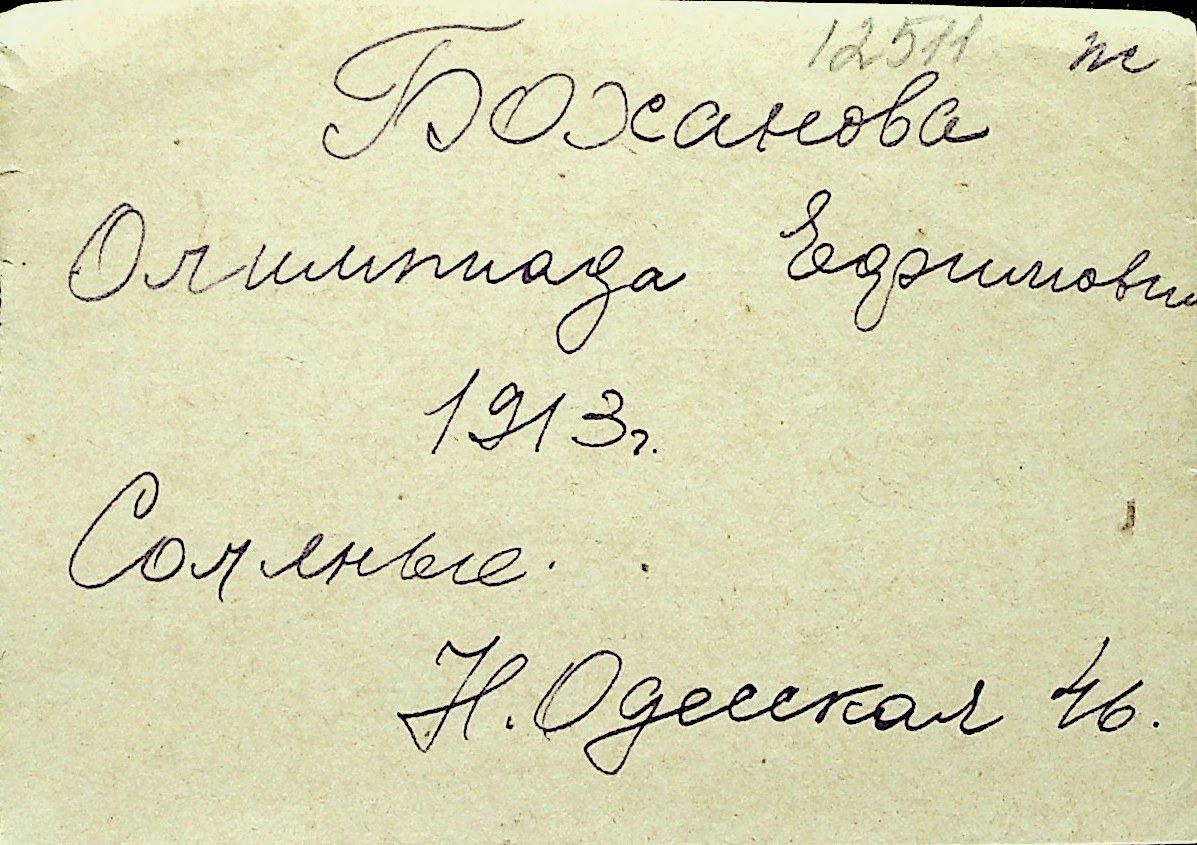 12511 ж
Божанова
Олимпиада Ефримовн
1913г.
Соляные.
Н. Одесская 46.